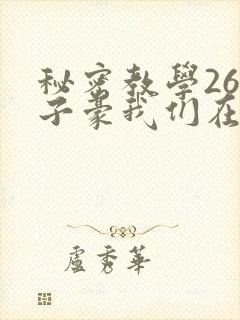 秘密教學26
子豪我们在
盧秀華